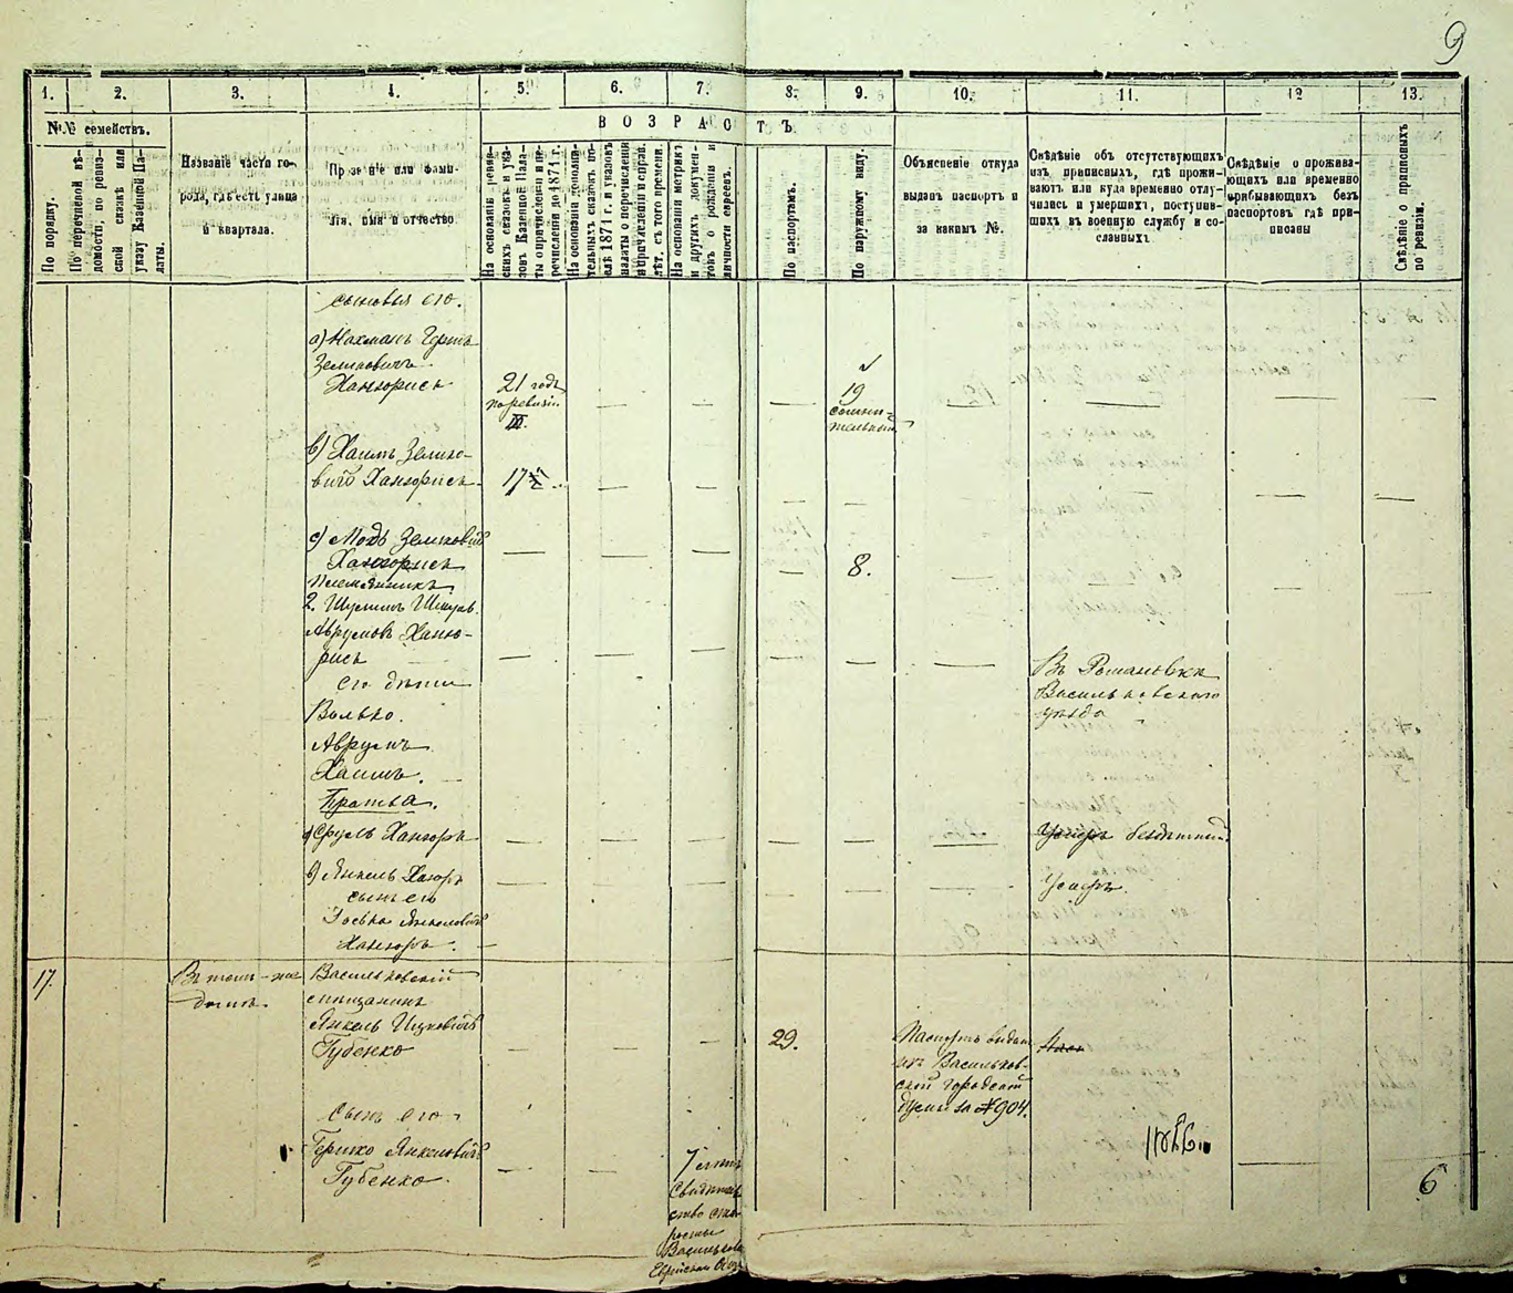 9
1.
2.
3.
4.
5.
6.
7.
8.
9.
10.
11.
12
13.
№№ семействъ.
ВОЗРАСТЪ.
По порядку.
По перечневой вѣ-
домости, по ревиз-
ской сказкѣ или
указу Казенной Па-
латы.
Названіе части го-
рода, гдѣ есть улица
и квартала.
Прозваніе или фами-
лія, имя и отчество
На основаніи ревиз-
скихъ сказокъ и ука-
зовъ Казенной Пала-
ты о причисленіи и пе-
речисленіи до 1871 г.
На основаніи дополни-
тельныхъ сказокъ по-
слѣ 1871 г. и указовъ
палаты о перечисленіи
и причисленіи и исправ.
лѣт. съ того времени.
На основаніи метрикъ
и другихъ докумен-
товъ о рожденіи и
личности евреевъ.
По паспортамъ.
По наружному виду.
Объясненіе откуда
выданъ паспортъ и
за какимъ №.
Свѣдѣніе объ отсутствующихъ
изъ приписныхъ, гдѣ прожи-
ваютъ или куда временно отлу-
чились и умершихъ, поступив-
шихъ въ военную службу и со-
сланныхъ
Свѣдѣніе о прожива-
ющихъ или временно
прибывающихъ безъ
паспортовъ гдѣ при-
писаны
Свѣдѣніе о приписныхъ
по ревизіи.
сыновья его.
а) Нахманъ Герш
Зеликовичъ
Ханторисъ
21 годъ
по ревизіи
19
сомни-
тельный
в) Хаимъ Зелико-
вичъ Ханторисъ
17
с) Мотъ Зелковичъ
Ханторисъ
8.
племянникъ
2. Шулимъ
Аврумовъ Ханто-
рисъ
его дѣти
Въ Романовкѣ
Васильковскаго
уѣзда
Волько.
Аврумъ
Хаимъ.
Братья.
а) Сруль Ханторъ
Умеръ бездѣтный
в) Янкель Ханторъ
Умеръ
сынъ его
Іосько Янкеловичъ
Ханторъ.
17.
Въ томъ-же
домѣ.
Васильковскій
мѣщанинъ
Янкель Ицковичъ
Губенко
29.
Паспортъ выдан
изъ Васильков-
ской городской
думы за № 904.
сынъ его
Гершко Янкеловичъ
Губенко.
7 лѣтъ
Свидѣтель
ство ста-
росты
Васильков
Еврейскаго Общ
6